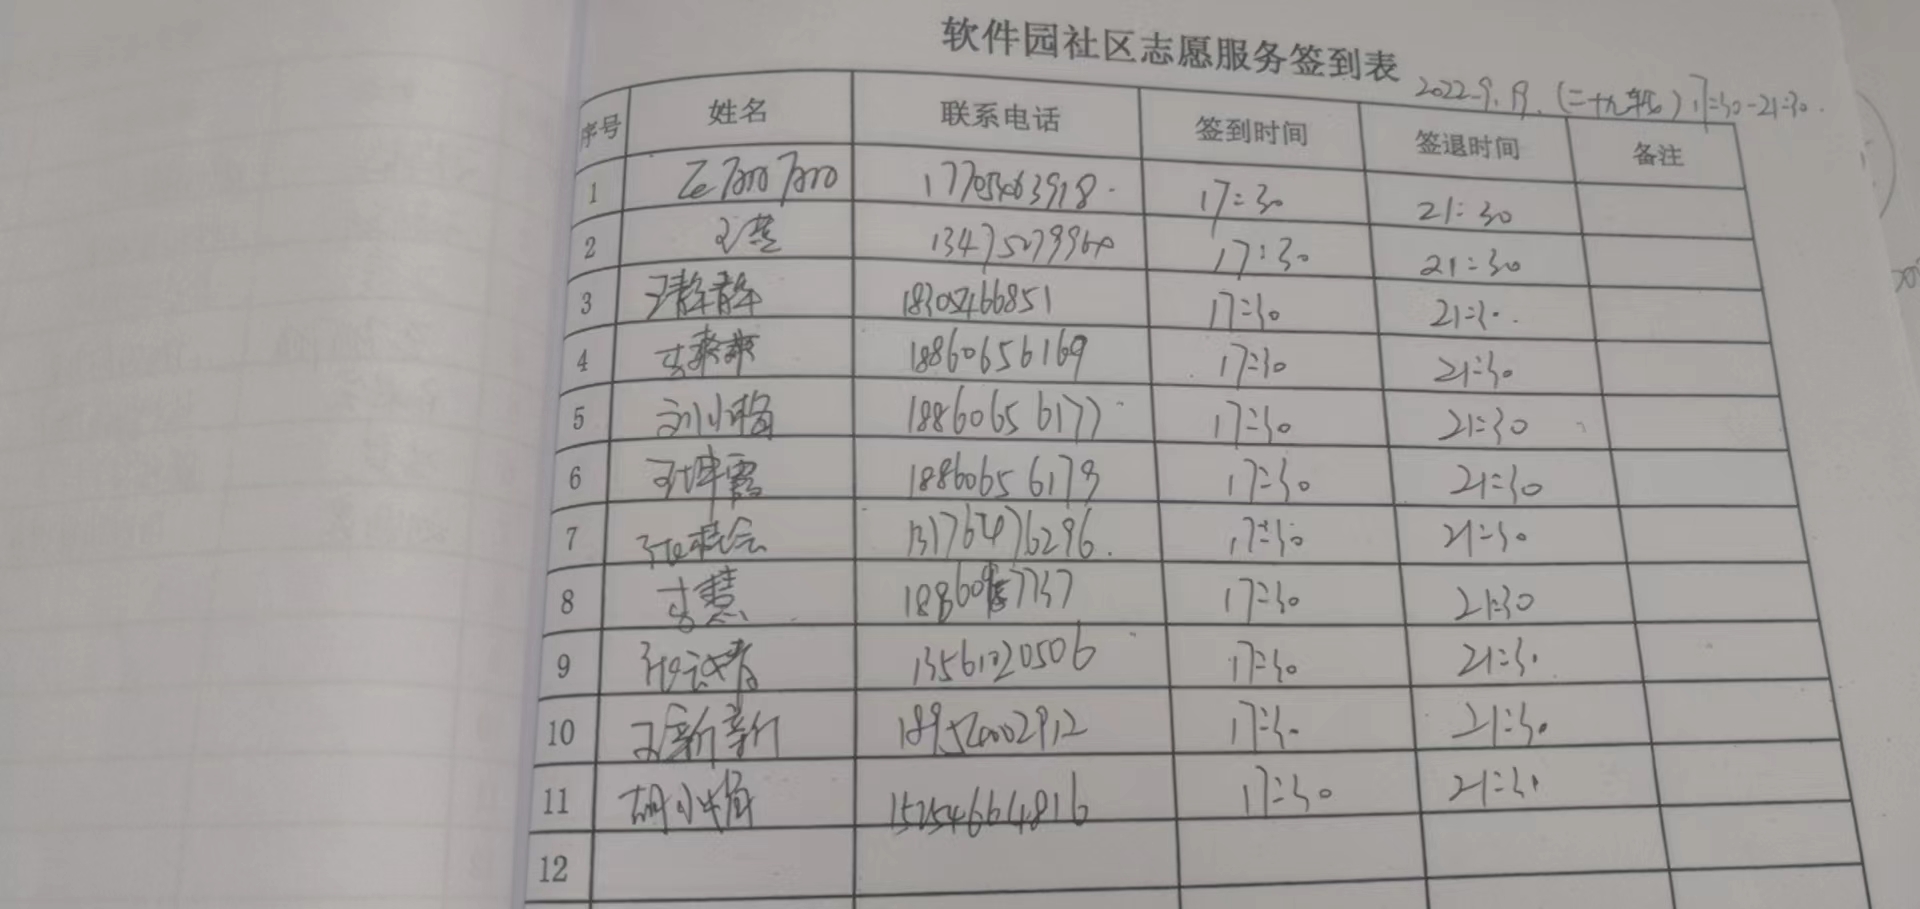 软件园社区志愿服务签到表
2022.9. 17:30-21:30.
序号 姓名 联系电话 签到时间 签退时间 备注
1 17:30 21:30
2 王燕 17:30 21:30
3 王静静 18305466851 17:30 21:30
4 李爽爽 18860656169 17:30 21:30
5 刘小梅 18860656177 17:30 21:30
6 18860656179 17:30 21:30
7 13176476296. 17:30 21:30
8 李慧 17:30 21:30
9 13561220506 17:30 21:30
10 王新新 18952002912 17:30 21:30
11 胡小梅 15254664816 17:30 21:30
12